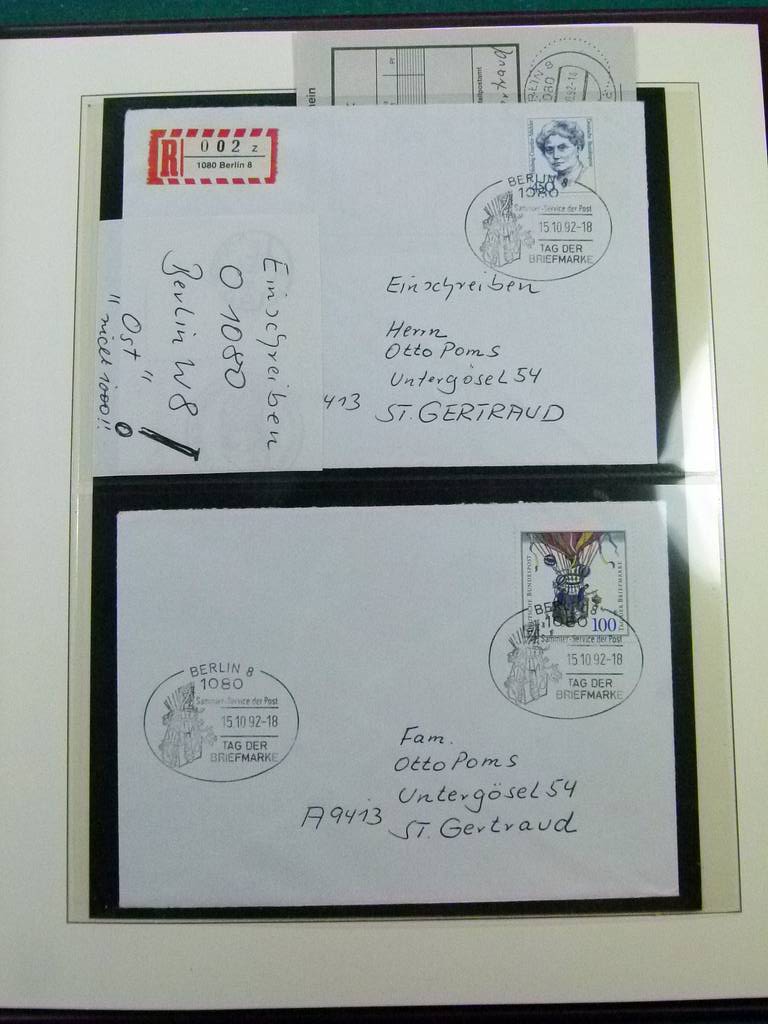 BERLIN 8
1080
R 002 z
1080 Berlin 8
450
BERLIN 8
1080
Sammler-Service der Post
15.10.92-18
TAG DER
BRIEFMARKE
Einschreiben
Herrn
Otto Poms
Untergösel 54
9413 ST. GERTRAUD
Einschreiben
O 1080
Berlin W8
"Ost"
"nicht 1000!!
DEUTSCHE BUNDESPOST
TAG DER BRIEFMARKE
100
BERLIN 8
1080
Sammler-Service der Post
15.10.92-18
TAG DER
BRIEFMARKE
BERLIN 8
1080
Sammler-Service der Post
15.10.92-18
TAG DER
BRIEFMARKE
Fam.
Otto Poms
Untergösel 54
A9413 ST. Gertraud